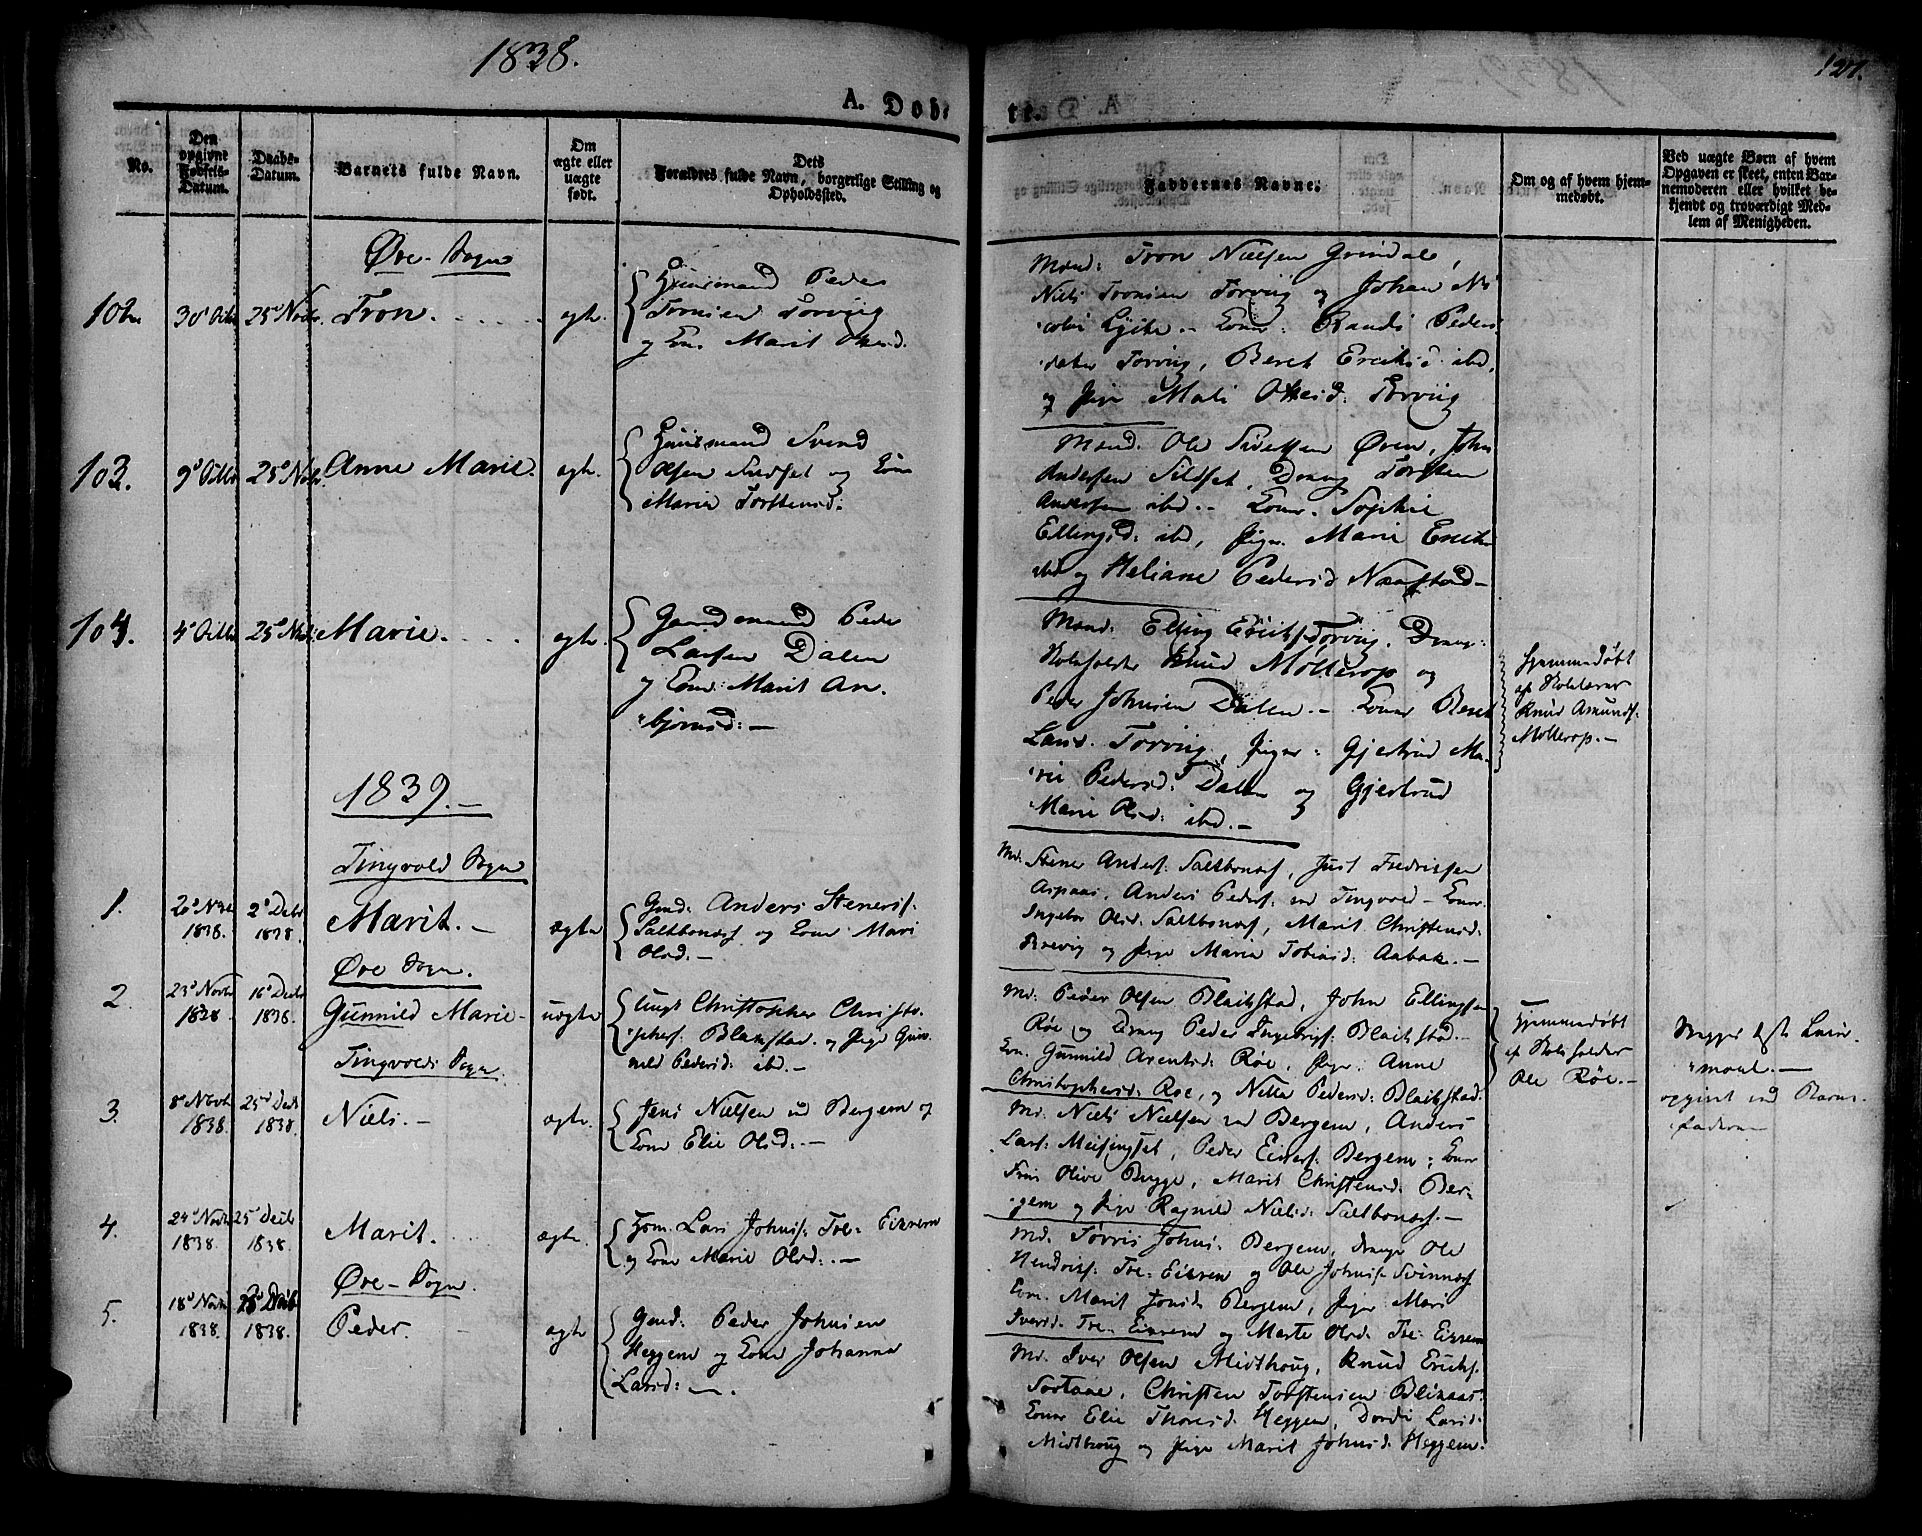 1838.
121.
A. Døbte.
No.
Den opgivne Fødsels-Datum.
Daabs-Datum.
Barnets fulde Navn.
Om ægte eller uægte født.
Dets Forældres fulde Navn, borgerlige Stilling og Opholdssted.
Faddernes Navne.
Om og af hvem hjemmedøbt.
Ved uægte Børn af hvem
Opgaven er skeet, enten Bar-
nemoderen eller hvilket be-
kjendt og troværdigt Med-
lem af Menigheden.
Øre-Sogn
102. 30 Octbr 25 Novbr. Tron. ægte.
Huusmand Peder
Tronsen Torvug
og Kone Marit Olsd.
Mænd: Tron Nielsen Grimdale,
Niels Tronsen Torvug og Johan Ni
colai Lycke. - Koner: Randi Peders
datter Torvug, Beret Ericksd. ibd,
og Pige Mali Olsd. Torvug
103. 9 Octbr 25 Novbr. Anne Marie. ægte.
Huusmand Svend
Olsen Sildset og Kone
Marie Torstensd:
Mænd. Ole Sivertsen Øren, John
Andersen Sildset, Dreng Torsten
Andersen ibd. - Koner. Sophie
Ellingsd: ibd, Piger. Marie Ericks
ibd og Heliane Pedersd Næsstad -
104. 4 Octbr 25 Novbr Marie. ægte.
Gaardmand Peder
Larsen Dalen
og Kone: Marit An.
bjørnsd: -
Mænd: Elling Ericks. Torvug. Dreng:
Skoleholder Knud Møllerop og
Peder Johnsen Dalen. - Koner Beret
Larsd. Torvug, Piger: Gjertrud Ma-
rie Pedersd: Dalen og Gjertrud
Marie Olsd: ibd. -
Hjemmedøbt
af Skolelærer
Knud Asmunds.
Møllerop. -
1839. -
Tingvold Sogn
1. 26 Novbr 1838. 2 Decbr 1838. Marit. - ægte
Gmd: Anders Steners.
Saltbonæs og Kone Mari
Olsd. -
Md. Stener Anders. Saltbonæs, Just Fredrikssen
Aspaas, Anders Peders. ved Tingvold - Koner.
Ingebor Olsd. Saltbonæs, Marit Christensd.
Brevig og Pige Maria Tobiasd: Aabak. -
Øre Sogn.
2. 23 Novbr 1838. 16 Decbr 1838. Gunnild Marie - uægte
Ungk Christopher Christo-
phers. Blakstad. og Pige Gun-
nild Pedersd: ibd. -
Md. Peder Olsen Blackstad, John Ellingsen
Røe og Dreng Peder Ingebrigs. Blackstad. -
Kon. Gunnild Arentsd: Røe, Piger: Anne
Christophersd: Røe, og Nille Pedersd: Blackstad.
Hjemmedøbt
af Skoleholder
Ole Røe. -
Begges 1ste Leier-
maal. -
opgivet ved Barne-
faderen
Tingvolds Sogn.
3. 8 Novbr 1838. 25 Decbr 1838. Niels. - ægte.
Jens Nielsen ved Bergem og
Kone Elie Olsd: -
Md. Niels Nielsen ved Bergem, Anders
Lars: Meisingset, Peder Einers: Bergem, Koner
Fru Olive Brygge, Marit Christensd: Ber-
gem og Pige Ragnild Nielsd: Saltbonæs. -
4. 24 Novbr 1838. 25 Decbr 1838. Marit. ægte.
Hsm. Lars Johns: Tre- Eikrem
og Kone Marie Olsd: . -
Md. Torris Johns: Bergem, Drenge Ole
Hendrics: Tre-Eikrem og Ole Johns: Svinnæs
Kon. Marit Jonsd: Bergem, Piger Mari
Iversd: Tre-Eikrem og Marte Olsd: Tre-Eikrem
Øre-Sogn.
5. 18 Novbr 1838. Decbr 1838. Peder. ægte
Gmd: Peder Johnsen
Heggem og Kone Johanna
Larsd: -.
Md. Iver Olsen Midthoug, Knud Ericks.
Sortane, Christen Torstensen Blikaas.
Koner Elie Thoresd: Heggem, Dordi Larsd:
Midthoug og Pige Marit Johnsd: Heggem.